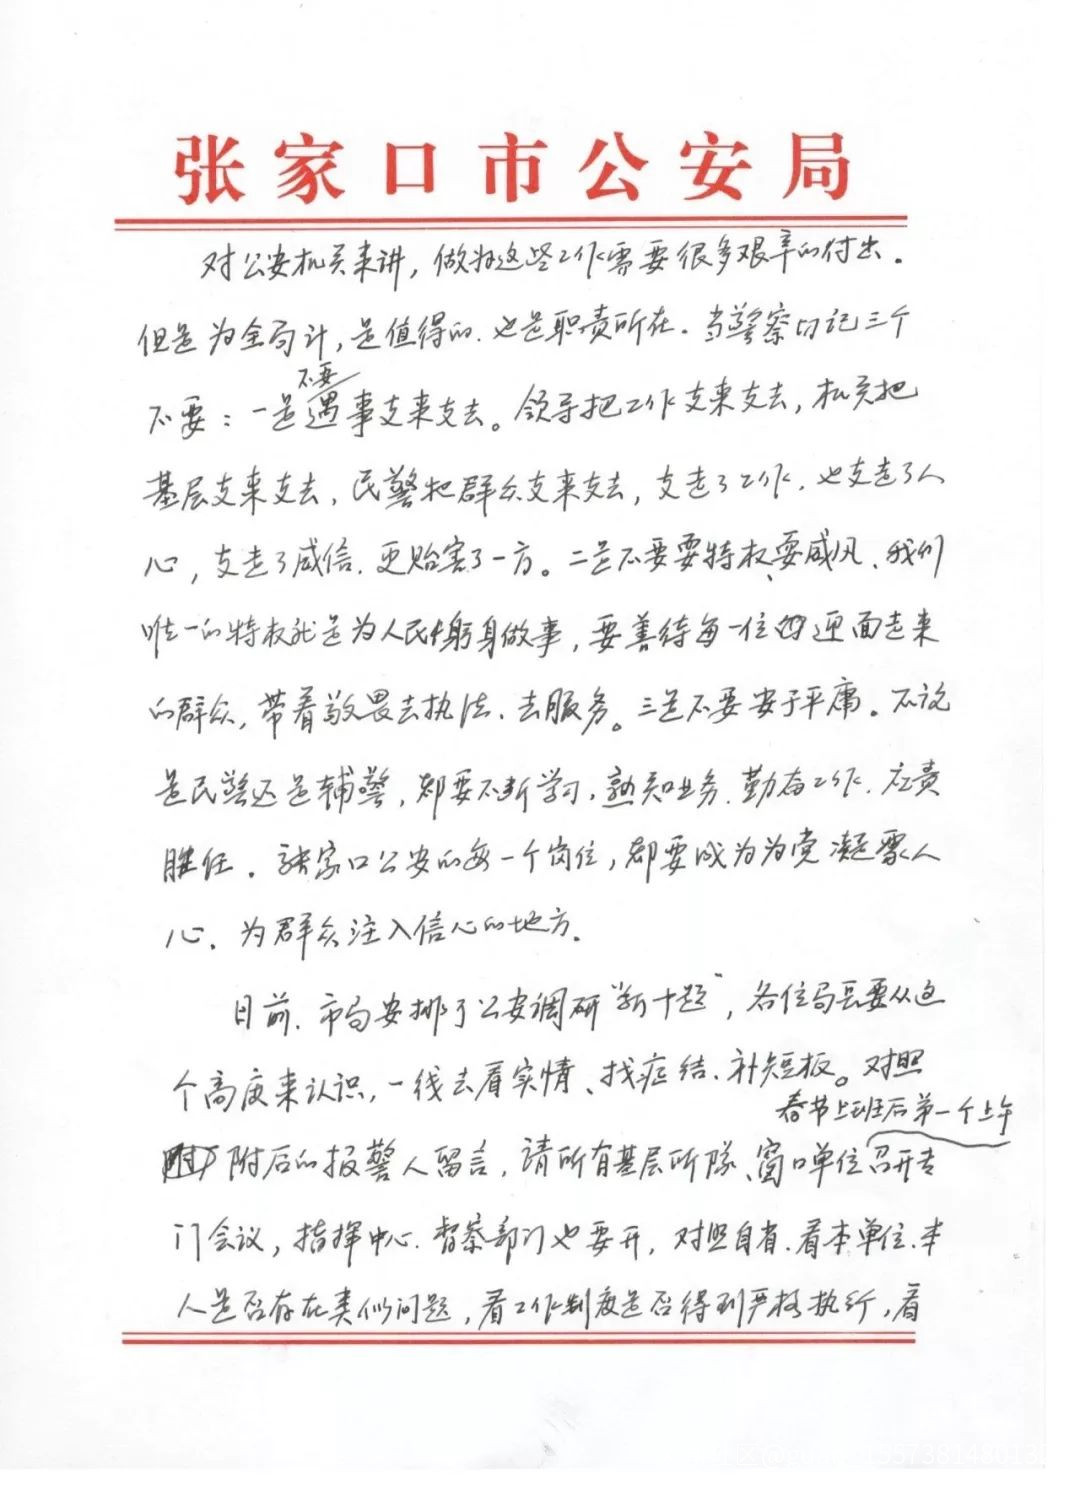 张家口市公安局
对公安机关来讲，做好这些工作需要很多艰辛的付出。
但是为全局计，是值得的．也是职责所在．当警察切记三个
不要
不要：一是遇事支来支去。领导把工作支来支去，机关把
基层支来支去，民警把群众支来支去，支走了工作．也支走了人
心，支走了威信．更贻害了一方。二是不要耍特权、耍威风．我们
唯一的特权就是为人民躬身做事，要善待每一位迎面走来
的群众，带着敬畏去执法．去服务。三是不要安于平庸。不论
是民警还是辅警，都要不断学习，熟知业务．勤奋工作．应责
胜任．张家口公安的每一个岗位，都要成为为党凝聚人
心．为群众注入信心的地方．
目前．市局安排了公安调研“新十题”，各位局长要从这
个高度来认识，一线去看实情、找症结．补短板。对照
春节上班后第一个上午
附后的报警人留言，请所有基层所队、窗口单位召开专
门会议，指挥中心．督察部门也要开，对照自省．看本单位．本
人是否存在类似问题，看工作制度是否得到严格执行，看